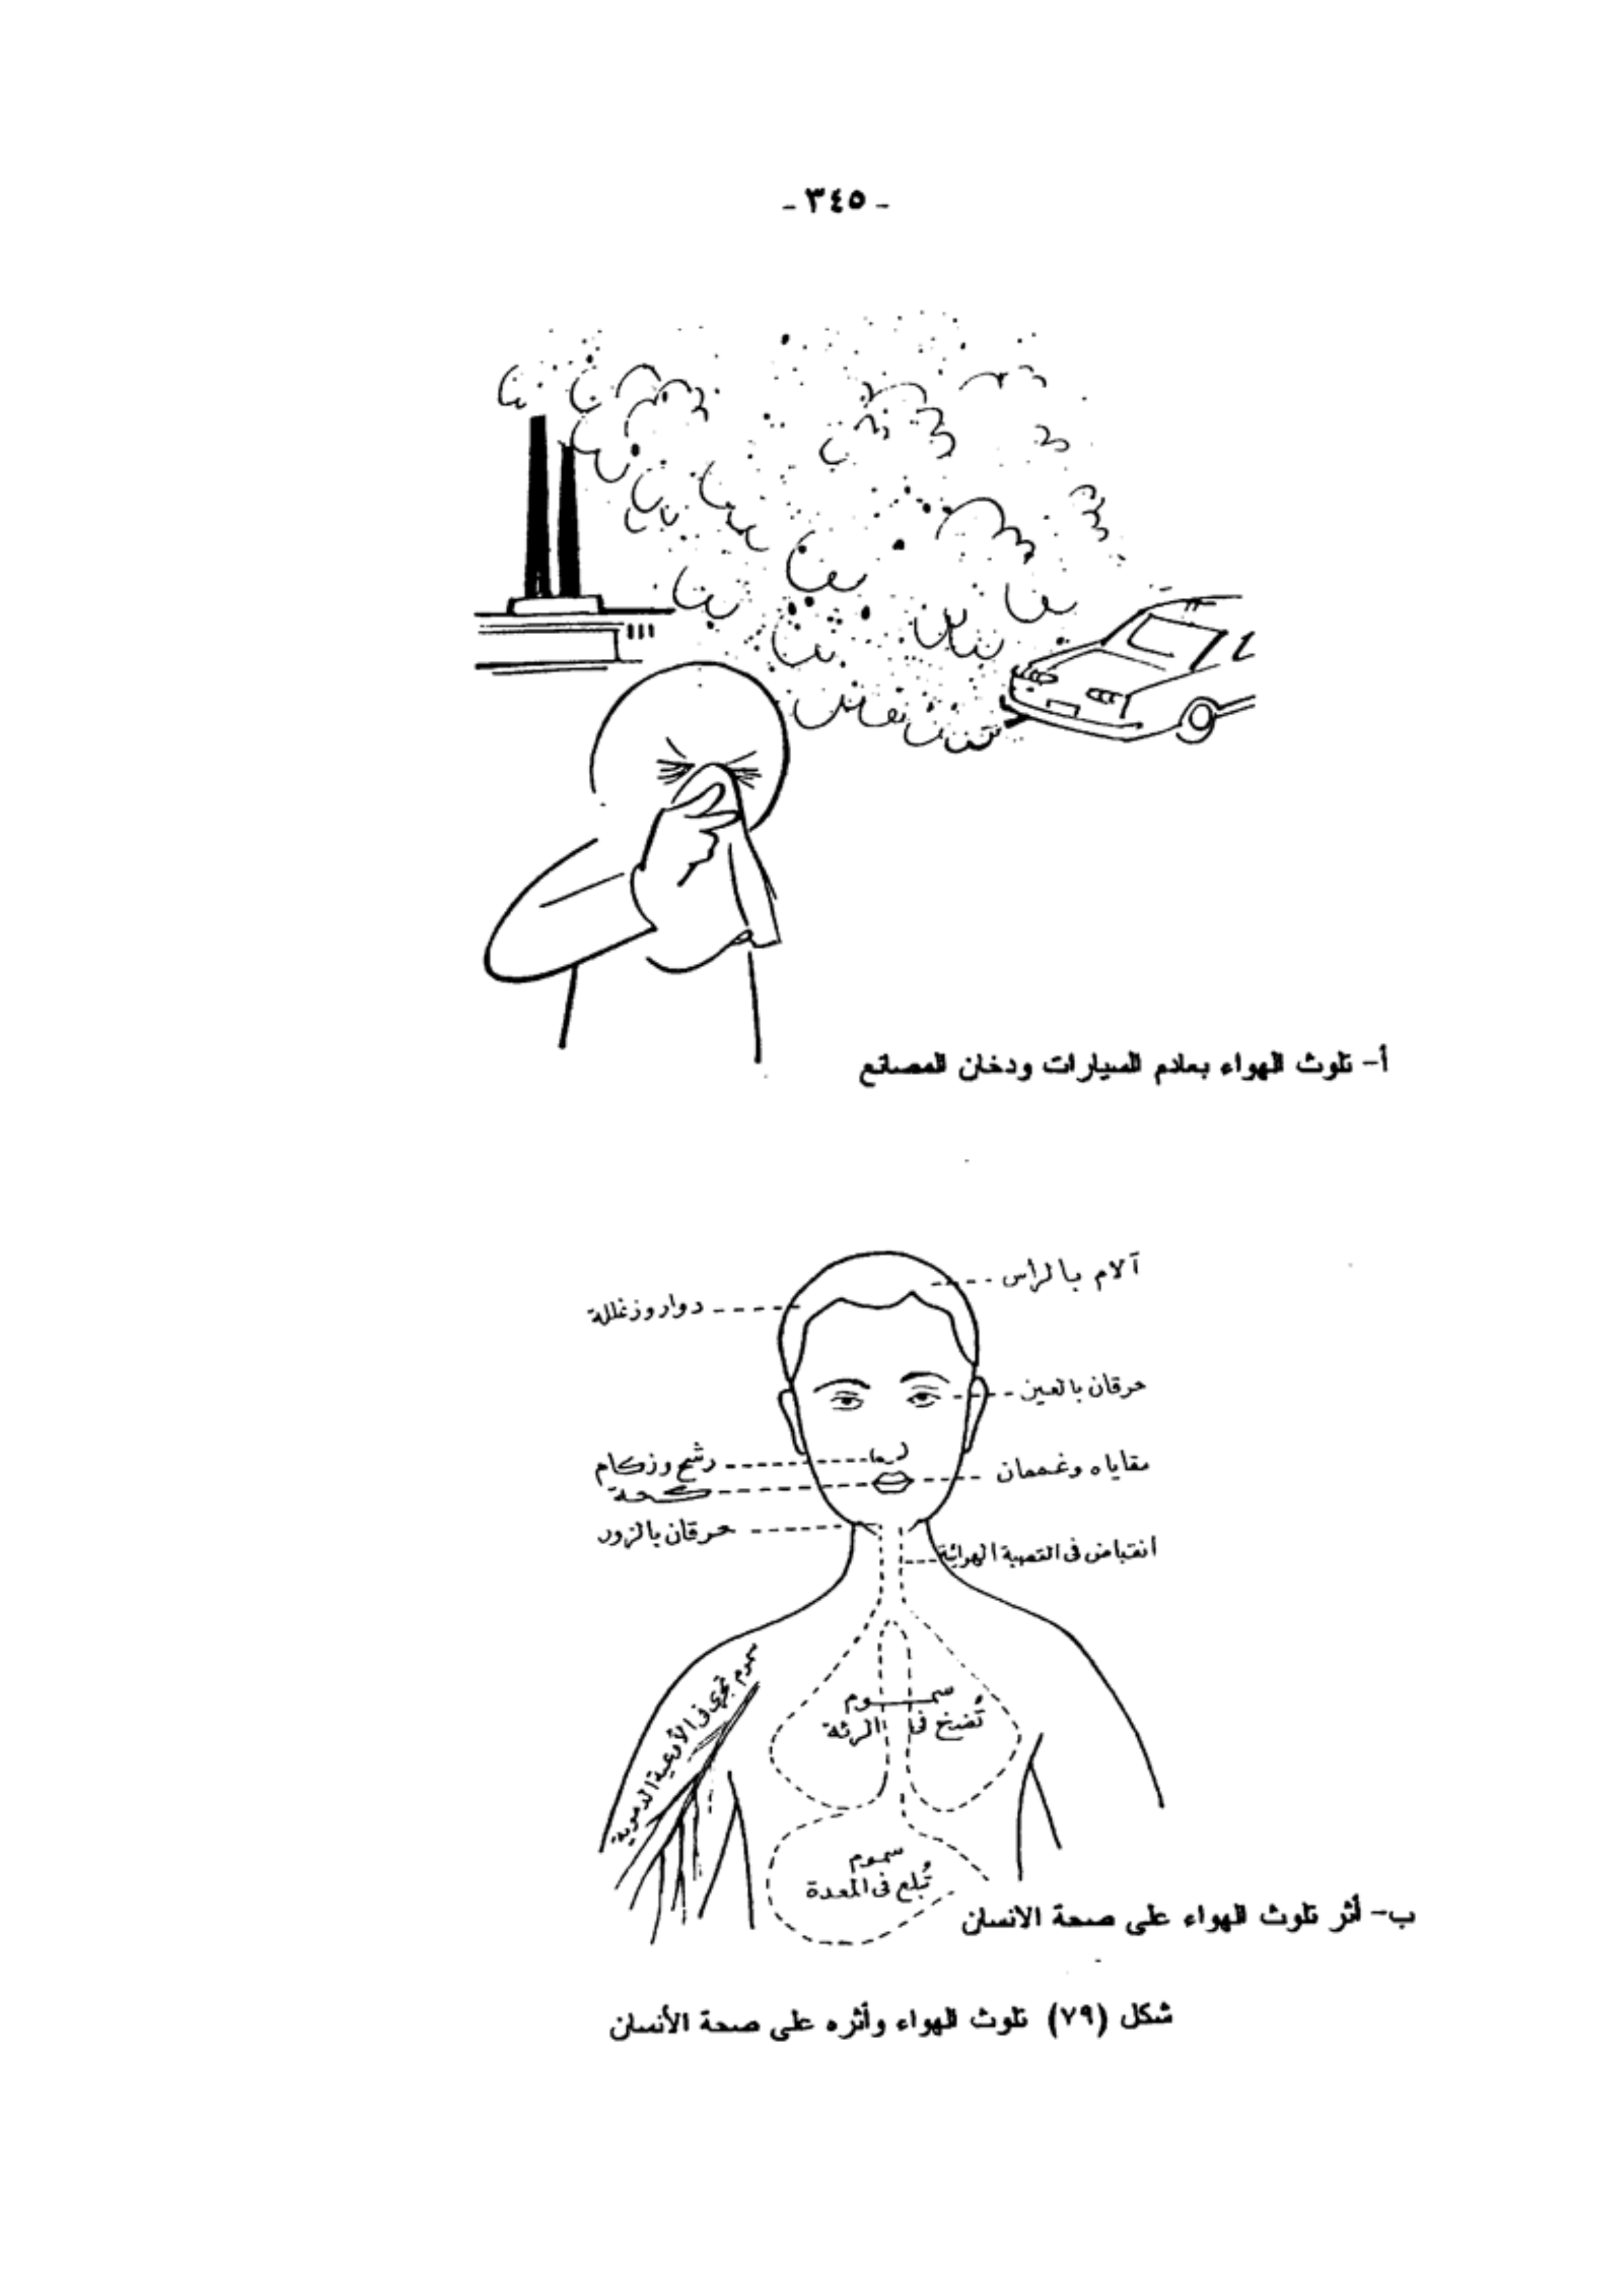 - ٣٤٥ -
أ- تلوث الهواء بعادم السيارات ودخان المصانع
آلام بالرأس
دوار وزغللة
حرقان بالعين
رشح وزكام
مقاياه وغممان
كحة
حرقان بالزور
انقباض فى القصبة الهوائية
سموم تجرى فى الأوعية الدموية
سموم
تُضخ فى الرئة
سموم
تُبلع فى المعدة
ب- أثر تلوث الهواء على صحة الانسان
شكل (٧٩) تلوث الهواء وأثره على صحة الأنسان